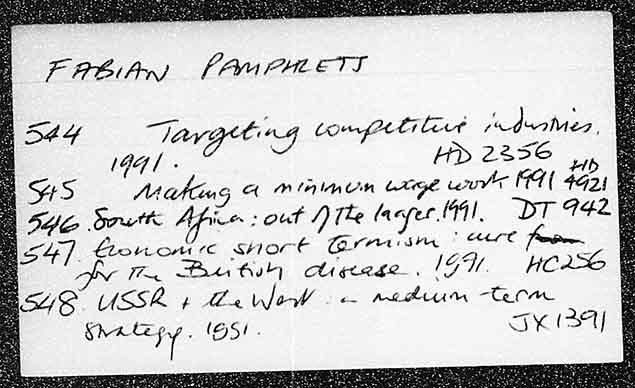 FABIAN PAMPHLETS
544 Targeting competitive industries.
1991. HD 2356
545 Making a minimum wage work 1991 HD 4921
546. South Africa: out of the laager. 1991. DT 942
547. Economic short termism: cure
for the British disease. 1991. HC256
548. USSR + the West: a medium-term
strategy. 1991. JX1391